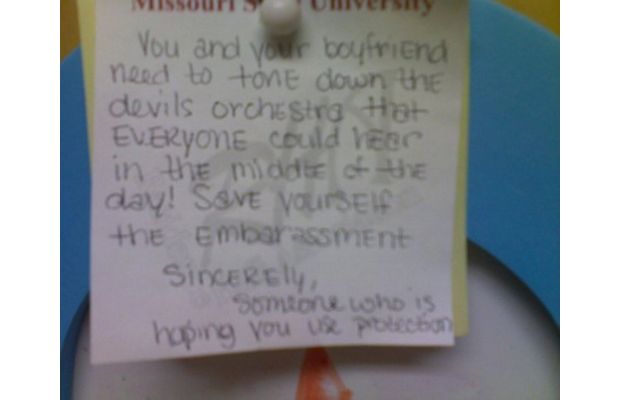 Missouri State University
You and your boyfriEnd
need to tonE down thE
devils orchEstra that
EVERYONE could hEar
in thE middlE of thE
day! SavE yoursElf
thE EmbarassmEnt
SincEREly,
Someone who is
hoping you use protection